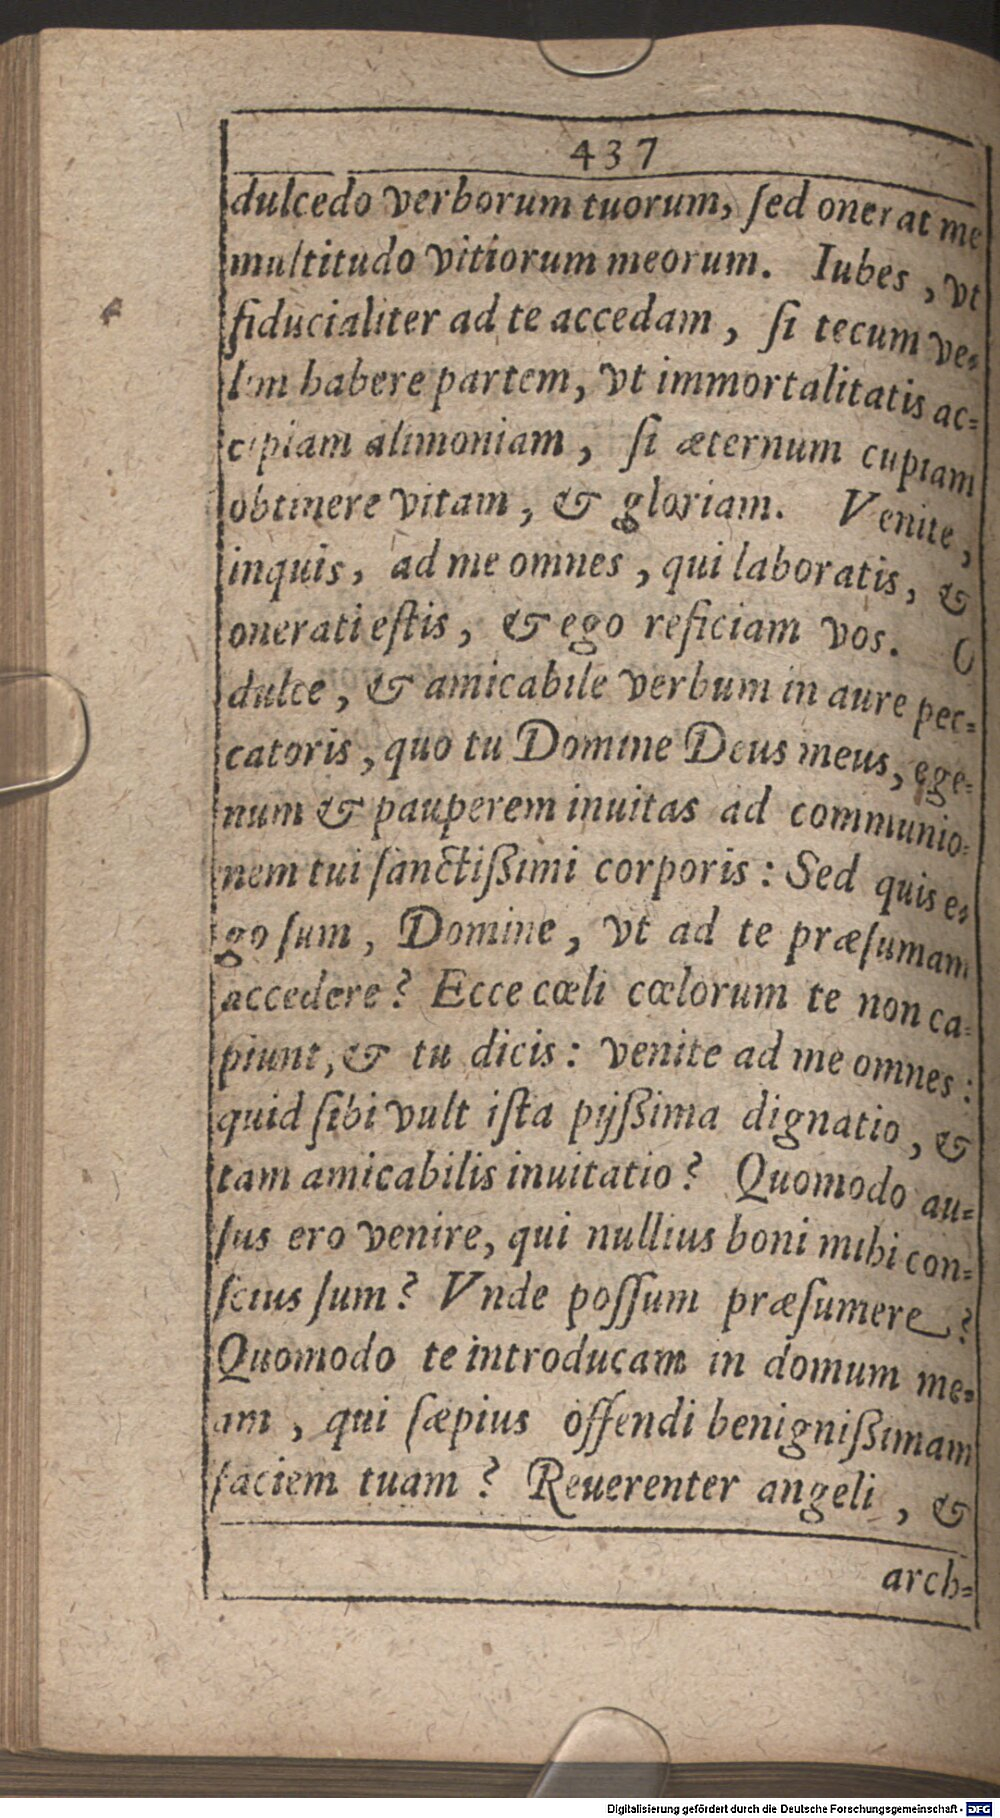 437
dulcedo verborum tuorum, ſed onerat me
multitudo vitiorum meorum. Iubes, vt
fiducialiter ad te accedam, ſi tecum ve-
lim habere partem, vt immortalitatis ac-
cipiam alimoniam, ſi æternum cupiam
obtinere vitam, & gloriam. Venite,
inquis, ad me omnes, qui laboratis, &
onerati eſtis, & ego reficiam vos. O
dulce, & amicabile verbum in aure pec-
catoris, quo tu Domine Deus meus, ege-
num & pauperem inuitas ad communio-
nem tui ſanctißimi corporis: Sed quis e-
go ſum, Domine, vt ad te præſumam
accedere? Ecce cœli cœlorum te non ca-
piunt, & tu dicis: venite ad me omnes:
quid ſibi vult iſta pijßima dignatio, &
tam amicabilis inuitatio? Quomodo au-
ſus ero venire, qui nullius boni mihi con-
ſcius ſum? Vnde poſſum præſumere?
Quomodo te introducam in domum me-
am, qui ſæpius offendi benignißimam
faciem tuam? Reuerenter angeli, &
arch-
Digitalisierung gefördert durch die Deutsche Forschungsgemeinschaft - DFG